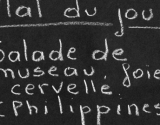 Plat du jou
Salade de
museau, foie
cervelle
Philippine